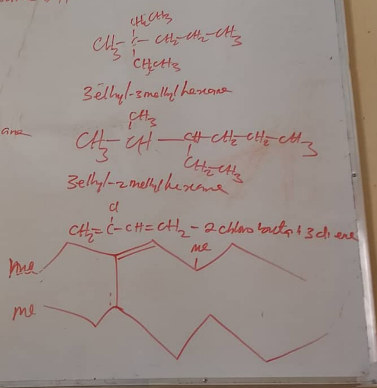 CH2CH3
CH3-C-CH2-CH2-CH3
CH2CH3
3ethyl-3methylhexane
CH3
ane
CH3-CH-CH-CH2-CH2-CH3
CH2CH3
3ethyl-2methylhexane
cl
CH2=C-CH=CH2-2chlorobuta1,3diene
me
me
me